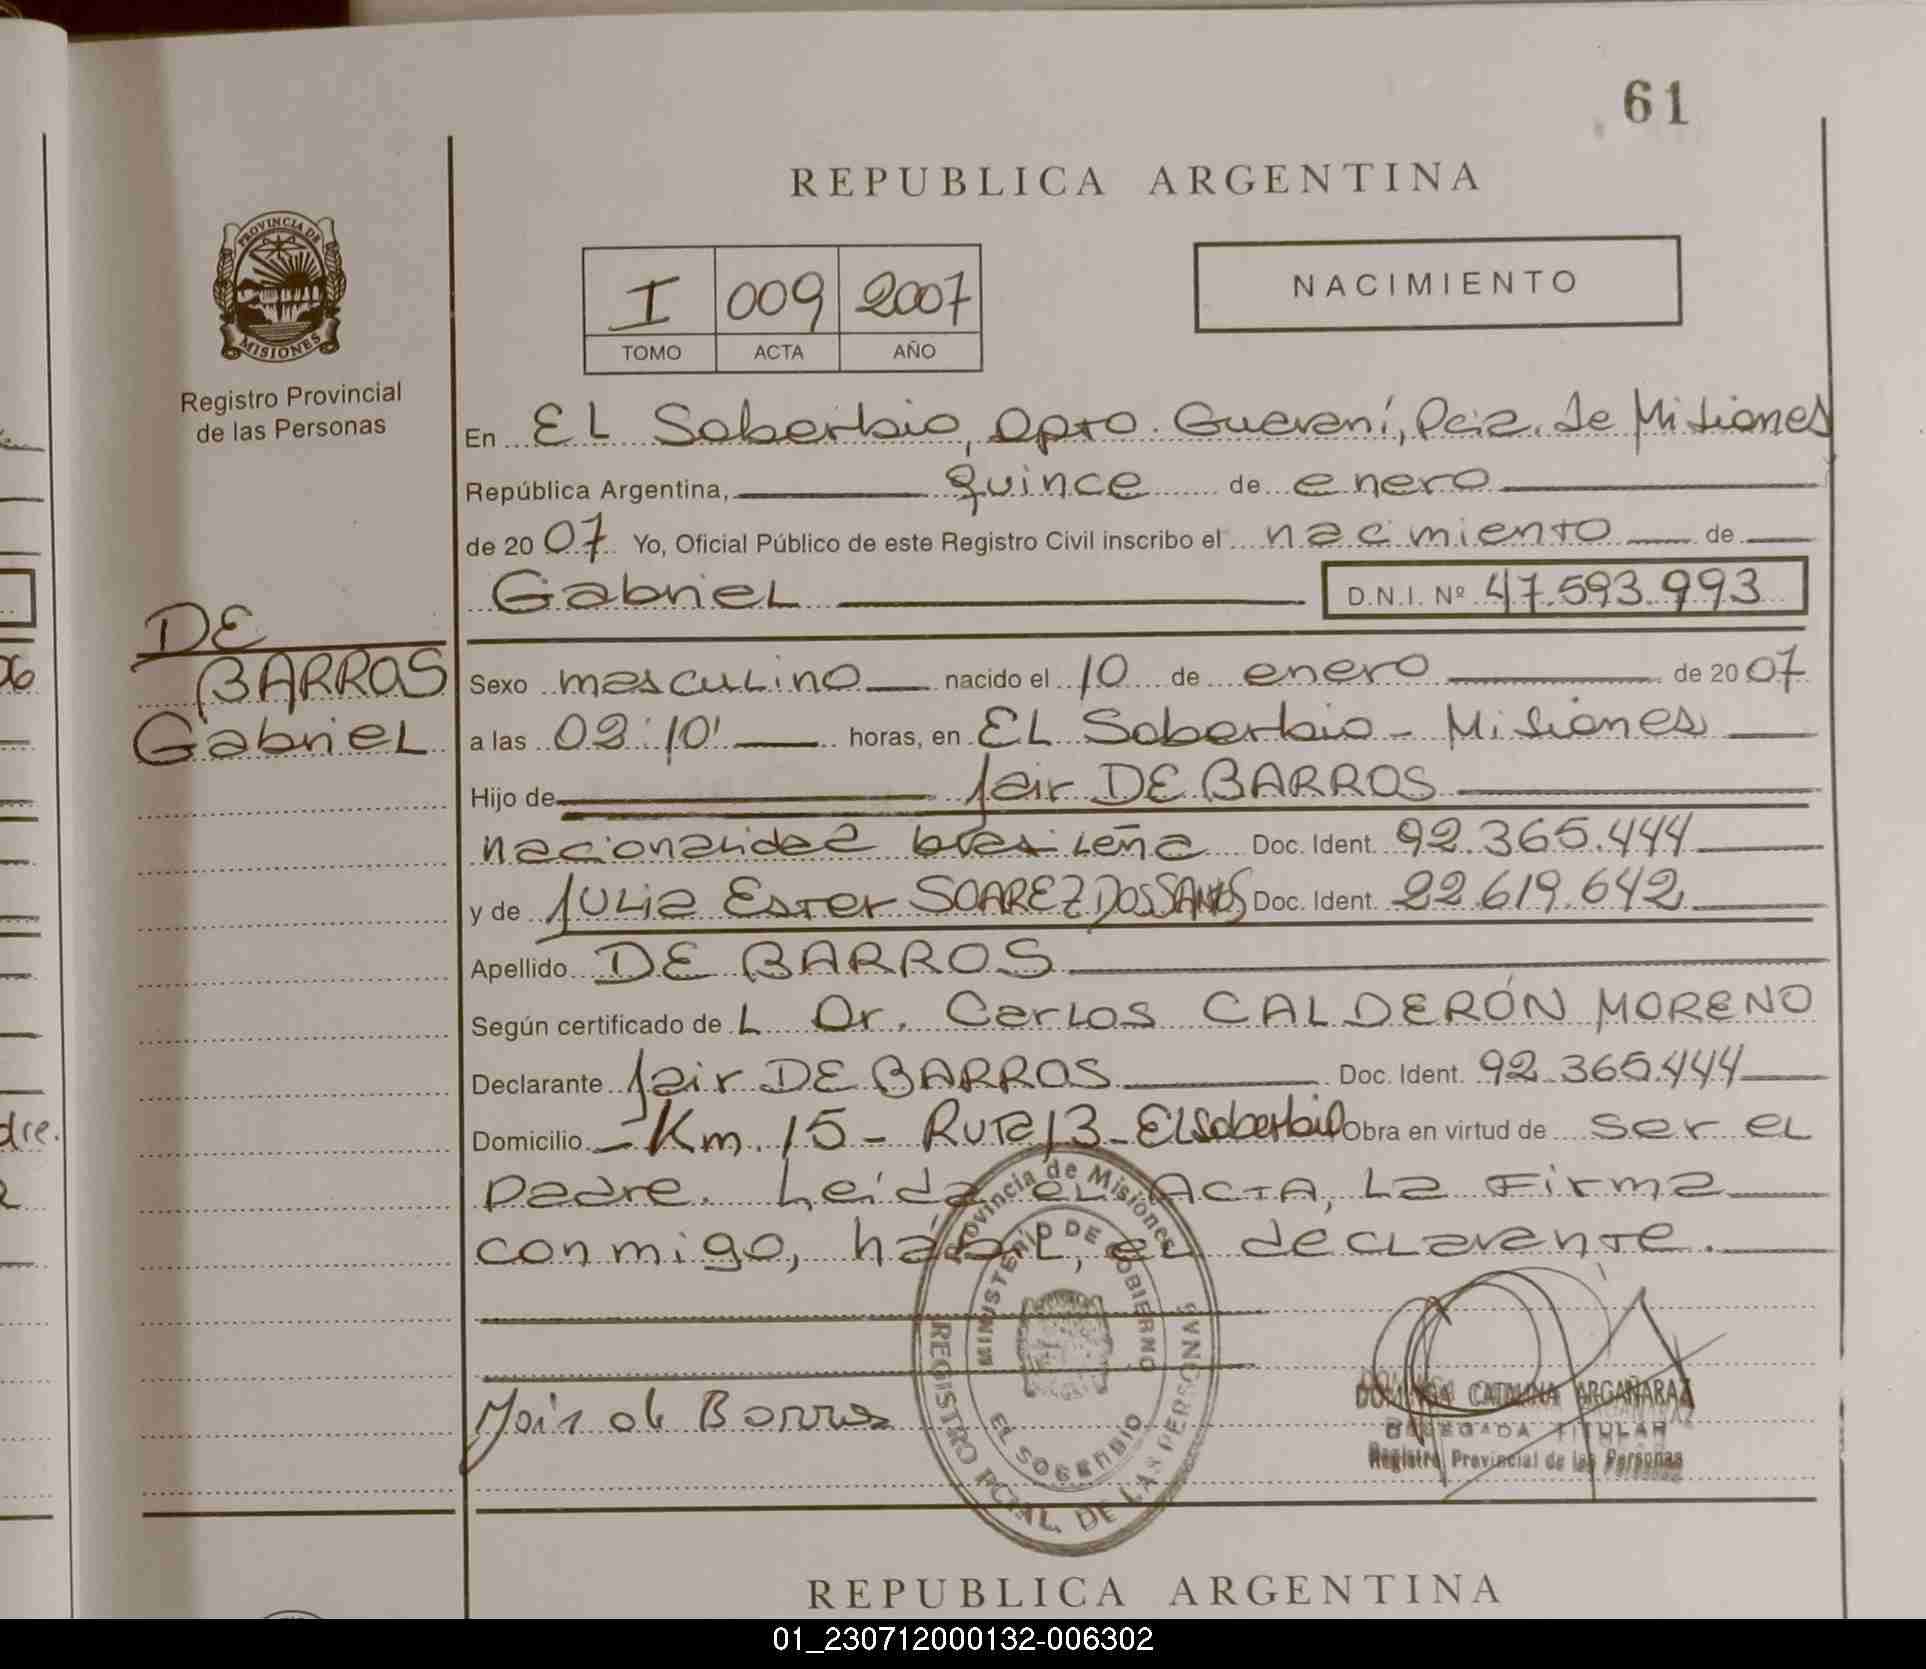 61
REPUBLICA ARGENTINA
PROVINCIA DE
MISIONES
Registro Provincial
de las Personas
I 009 2007
TOMO ACTA AÑO
NACIMIENTO
En EL Soberbio, Dpto. Guaraní, Pcia. de Misiones
República Argentina, quince de enero
de 2007 Yo, Oficial Público de este Registro Civil inscribo el nacimiento de
Gabriel D.N.I. Nº 47.593.993
DE
BARROS
Gabriel
Sexo masculino nacido el 10 de enero de 2007
a las 02:10' horas, en EL Soberbio - Misiones
Hijo de Jair DE BARROS
nacionalidad brasileña Doc. Ident. 92.365.444
y de Julia Ester SOAREZ DOS SANTOS Doc. Ident. 22.619.642
Apellido DE BARROS
Según certificado de L Dr. Carlos CALDERÓN MORENO
Declarante Jair DE BARROS Doc. Ident. 92.365.444
Domicilio - Km. 15 - Ruta 13 - El Soberbio Obra en virtud de ser el
padre. Leída el ACTA, la firma
conmigo, hábil, el declarante.
Provincia de Misiones
MINISTERIO DE GOBIERNO
EL SOBERBIO
REGISTRO PCIAL. DE LAS PERSONAS
Jair de Barros
DOMINGA CATALINA ARGAÑARAZ
DELEGADA TITULAR
Registro Provincial de las Personas
REPUBLICA ARGENTINA
01_230712000132-006302